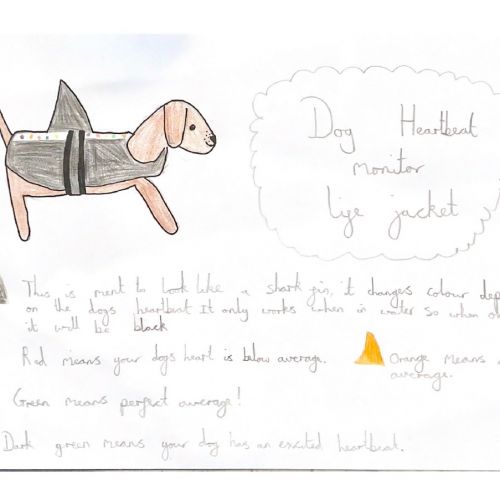 Dog Heartbeat
monitor
life jacket
This is ment to look like a shark fin, it changes colour dep
on the dogs heartbeat It only works when in water so when o
it will be black
Red means your dogs heart is below average.
Orange means
average.
Green means perfect average!
Dark green means your dog has an excited heartbeat.